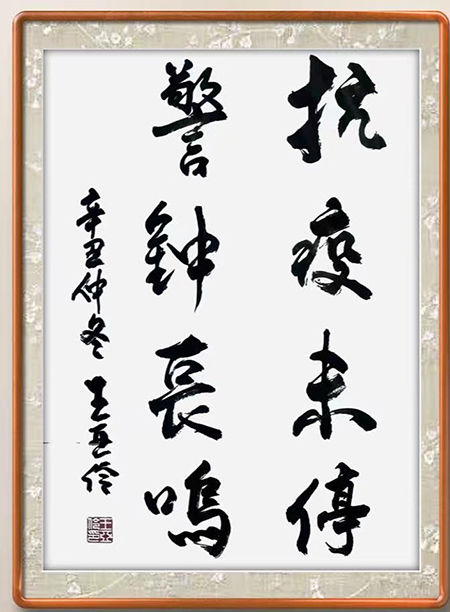 抗疫未停
警钟长鸣
辛丑仲冬 王亚伶